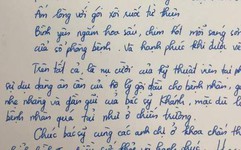 Ấm lòng với gói xôi ruốc từ thiện
Bình yên ngắm hoa sấu, chim hót mỗi sáng
của cô phòng bệnh. Và hạnh phúc khi được về
Trên tất cả, là nụ cười của kỹ thuật viên
sự dịu dàng ân cần của hộ lý gởi đến cho bệnh nhân,
nhẹ nhàng và gần gũi của bác sỹ Khanh, mặc dù
bệnh nhân quá tải như ở chiến trường.
Chúc bác sỹ cùng các anh chị ở khoa chấn